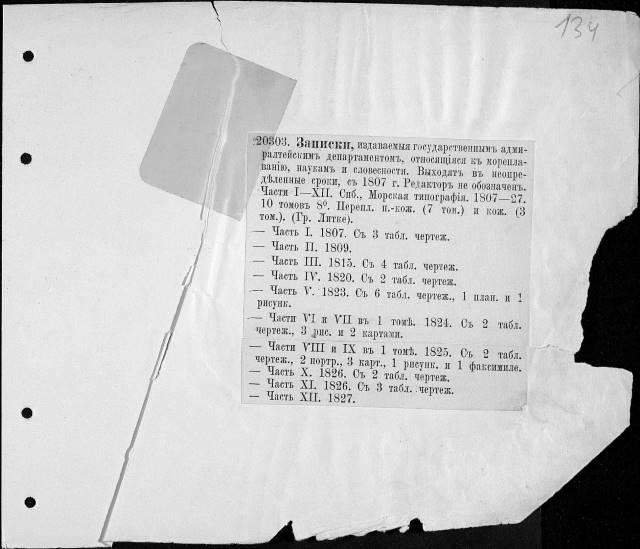 134
20303. Записки, издаваемыя государственнымъ адми-
ралтейскимъ департаментомъ, относящіяся къ морепла-
ванію, наукамъ и словесности. Выходятъ въ неопре-
дѣленные сроки, съ 1807 г. Редакторъ не обозначенъ.
Части I—XII. Спб., Морская типографія. 1807—27.
10 томовъ 8º. Перепл. п.-кож. (7 том.) и кож. (3
том.). (Гр. Литке).
— Часть I. 1807. Съ 3 табл. чертеж.
— Часть II. 1809.
— Часть III. 1815. Съ 4 табл. чертеж.
— Часть IV. 1820. Съ 2 табл. чертеж.
— Часть V. 1823. Съ 6 табл. чертеж., 1 план. и 1
рисунк.
— Части VI и VII въ 1 томѣ. 1824. Съ 2 табл.
чертеж., 3 рис. и 2 картами.
— Части VIII и IX въ 1 томѣ. 1825. Съ 2 табл.
чертеж., 2 портр., 3 карт., 1 рисунк. и 1 факсимиле.
— Часть X. 1826. Съ 2 табл. чертеж.
— Часть XI. 1826. Съ 3 табл. чертеж.
— Часть XII. 1827.